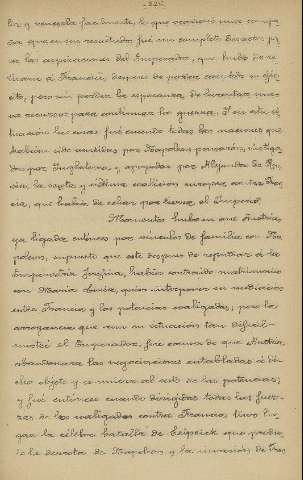 -322-
liz y vencerla facilmente, lo que ocasionó una campa-
ña que en sus resultados fué un completo desastre pa-
ra las aspiraciones del Emperador, que hubo de re-
tirarse á Francia, despues de perder casi todo su ejér-
cito, pero sin perder la esperanza de levantar nue-
vos recursos para continuar la guerra. Y en esta si-
tuacion las cosas fué cuando todas las naciones que
habian sido vencidas por Napoleon formaron, instiga-
das por Inglaterra, y apoyadas por Alejandro de Ru-
sia, la sexta y última coalicion europea contra Fran-
cia, que habia de echar por tierra el Imperio.
Momentos hubo en que Austria,
ya ligada entónces por vínculos de familia con Na-
poleon, supuesto que este despues de repudiar á la
Emperatriz Josefina, habia contraido matrimonio
con Maria Luisa, quiso interponer su mediacion
entre Francia y las potencias coaligadas; pero la
arrogancia que aun en situacion tan dificil
mostró el Emperador, fué causa de que Austria,
abandonara las negociaciones entabladas á di-
cho objeto y se uniera al resto de las potencias;
y fué entónces cuando dirigidas todas las fuer-
zas de los coaligados contra Francia, tuvo lu-
gar la célebre batalla de Leipsick que produ-
jo la derrota de Napoleon y la invasion de Fran